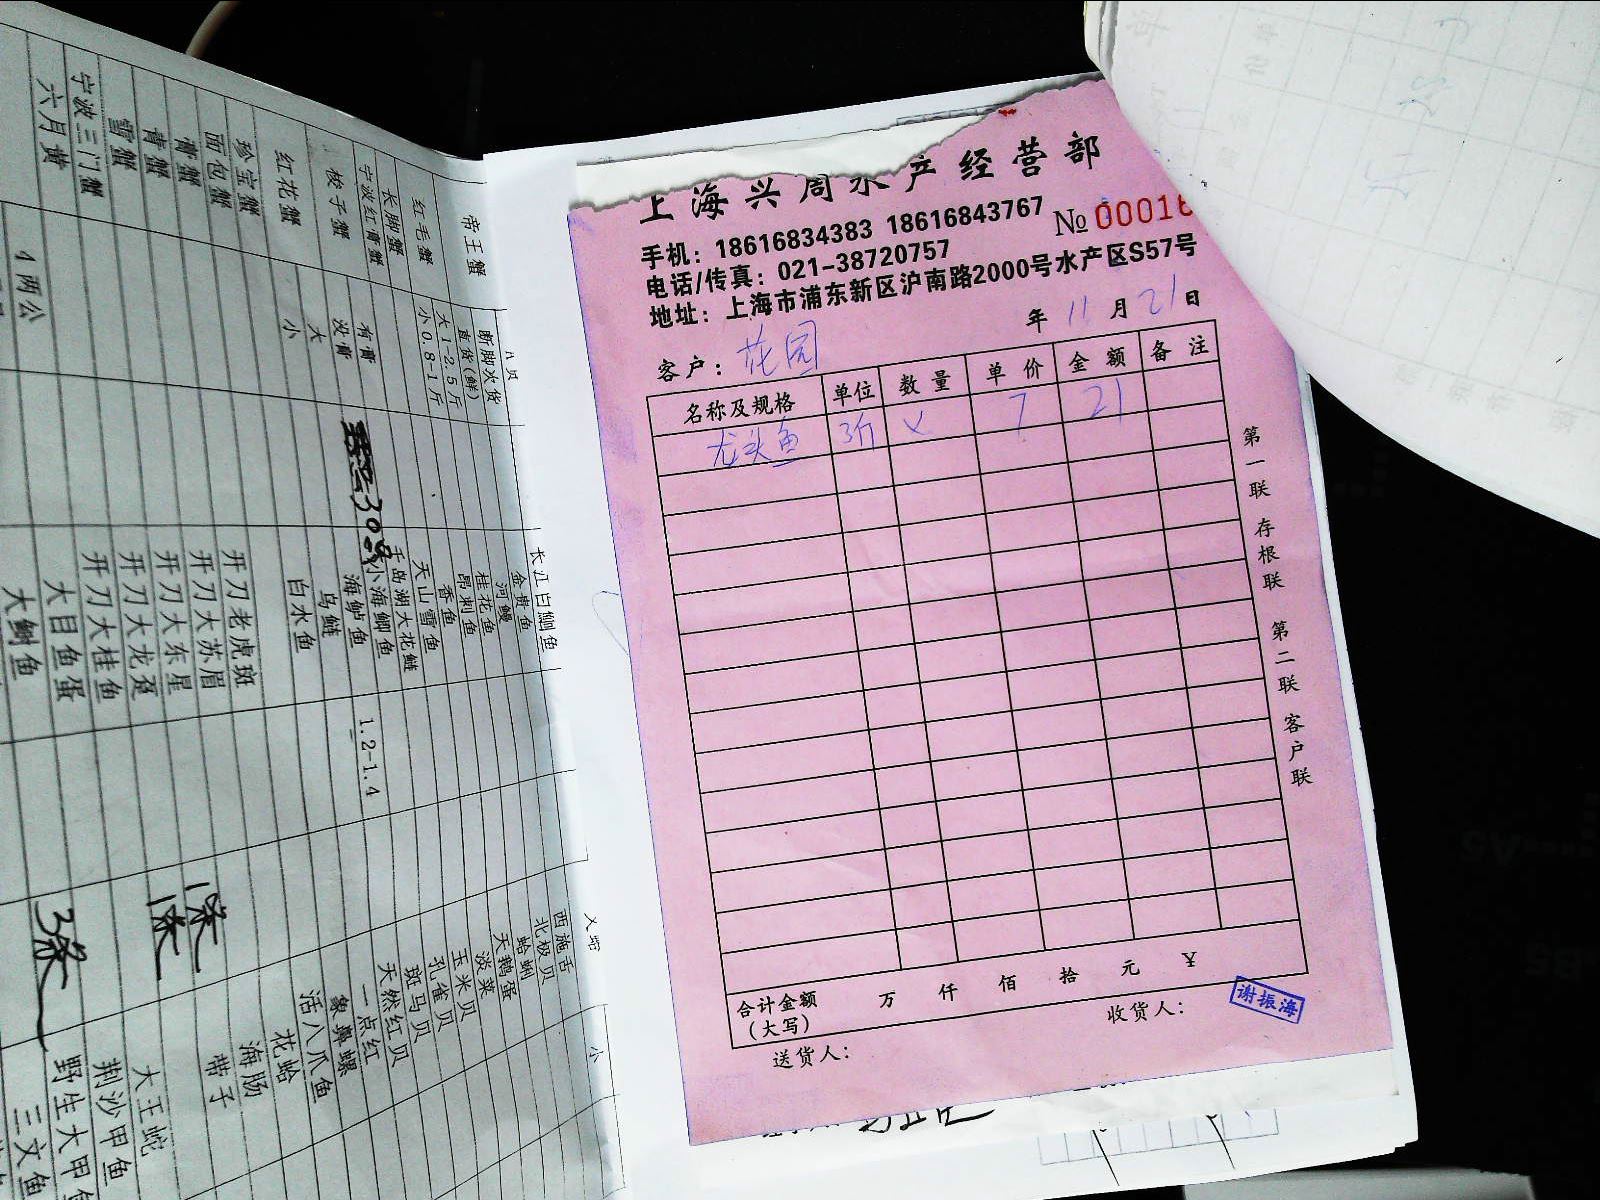 上海兴周水产经营部
手机：18616834383 18616843767
№ 00016
电话/传真：021-38720757
地址：上海市浦东新区沪南路2000号水产区S57号
年 11 月 21 日
客户：花园
名称及规格 单位 数量 单价 金额 备注
龙头鱼 3斤 × 7 21
第一联 存根联 第二联 客户联
合计金额（大写） 万 仟 佰 拾 元 ¥
收货人：
谢振海
送货人：
帝王蟹
红毛蟹
长脚蟹
宁波红膏蟹
梭子蟹
红花蟹
珍宝蟹
面包蟹
膏蟹
青蟹
雪蟹
宁波三门蟹
六月黄
断脚次货
直货(鲜)
大1-2.5斤
小0.8-1斤
有膏
没膏
大
小
4两公
308
长江白鮰鱼
金贵鱼
河鳗
桂花鱼
昂刺鱼
香鱼
天山雪鱼
千岛湖大花鲢
小海鲫鱼
海鲈鱼
乌鲢
白水鱼
开刀老虎斑
开刀大苏眉
开刀大东星
开刀大龙趸
开刀大桂鱼
大目鱼蛋
大鲥鱼
1.2-1.4
1条
1条
3条
小
西施舌
北极贝
蛤蜊
天鹅蛋
淡菜
玉米贝
孔雀贝
斑马贝
天然红贝
一点红
象鼻螺
活八爪鱼
花蛤
海肠
带子
大王蛇
荆沙甲鱼
野生大甲鱼
三文鱼